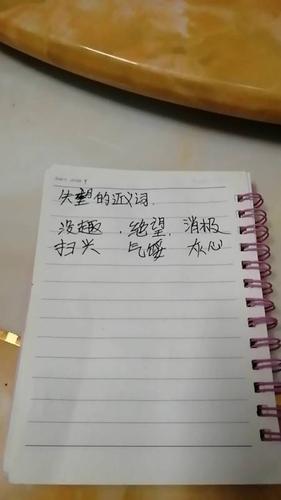 失望的近义词.
没趣.绝望.消极
扫兴 气馁 灰心